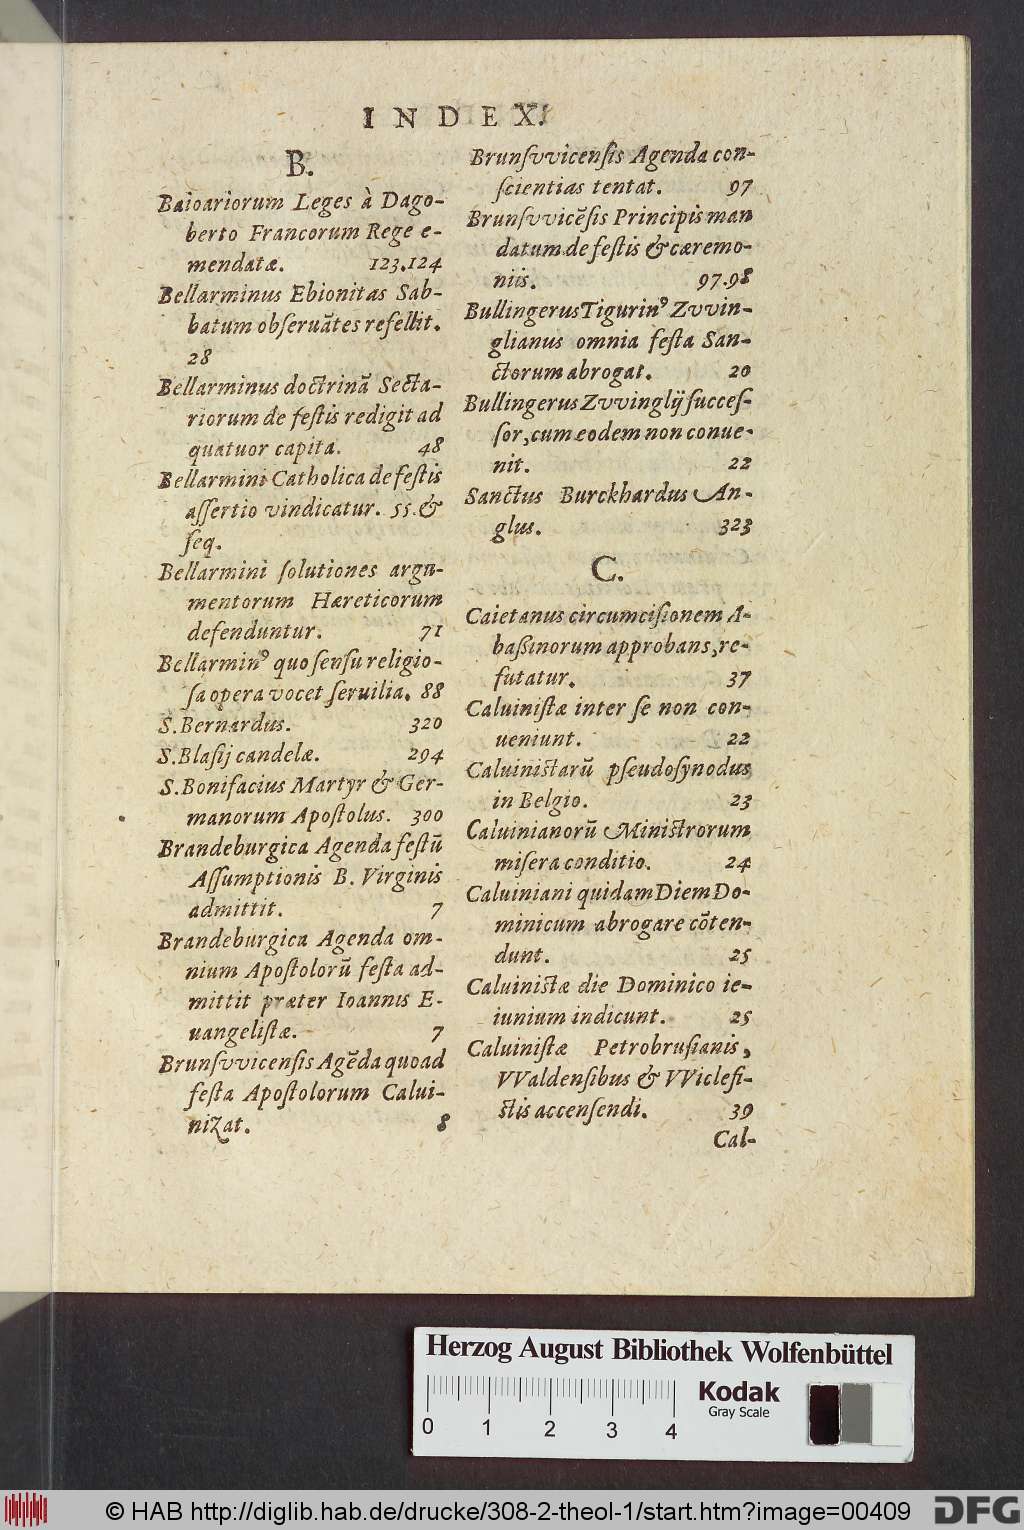 INDEX.
B.
Baioariorum Leges à Dago-
berto Francorum Rege e-
mendatæ. 123.124
Bellarminus Ebionitas Sab-
batum obſeruãtes refellit.
28
Bellarminus doctrinã Secta-
riorum de feſtis redigit ad
quatuor capita. 48
Bellarmini Catholica de feſtis
aſſertio vindicatur. 55. &
ſeq.
Bellarmini ſolutiones argu-
mentorum Hæreticorum
defenduntur. 71
Bellarminꝰ quo ſenſu religio-
ſa opera vocet ſeruilia. 88
S. Bernardus. 320
S. Blaſij candelæ. 294
S. Bonifacius Martyr & Ger-
manorum Apoſtolus. 300
Brandeburgica Agenda feſtũ
Aſſumptionis B. Virginis
admittit. 7
Brandeburgica Agenda om-
nium Apoſtolorũ feſta ad-
mittit præter Ioannis E-
uangeliſtæ. 7
Brunſvvicenſis Agẽda quoad
feſta Apoſtolorum Calui-
nizat. 8
Brunſvvicenſis Agenda con-
ſcientias tentat. 97
Brunſvvicẽſis Principis man
datum de feſtis & cæremo-
niis. 97.98
Bullingerus Tigurinꝰ Zvvin-
glianus omnia feſta San-
ctorum abrogat. 20
Bullingerus Zvvinglij ſucceſ-
ſor, cum eodem non conue-
nit. 22
Sanctus Burckhardus An-
glus. 323
C.
Caietanus circumciſionem A-
baßinorum approbans, re-
futatur. 37
Caluiniſtæ inter ſe non con-
ueniunt. 22
Caluiniſtarũ pſeudoſynodus
in Belgio. 23
Caluinianorũ Miniſtrorum
miſera conditio. 24
Caluiniani quidam Diem Do-
minicum abrogare cõten-
dunt. 25
Caluiniſtæ die Dominico ie-
iunium indicunt. 25
Caluiniſtæ Petrobruſianis,
VValdenſibus & VViclefi-
ſtis accenſendi. 39
Cal-
Herzog August Bibliothek Wolfenbüttel
0 1 2 3 4
Kodak
Gray Scale
© HAB http://diglib.hab.de/drucke/308-2-theol-1/start.htm?image=00409
DFG